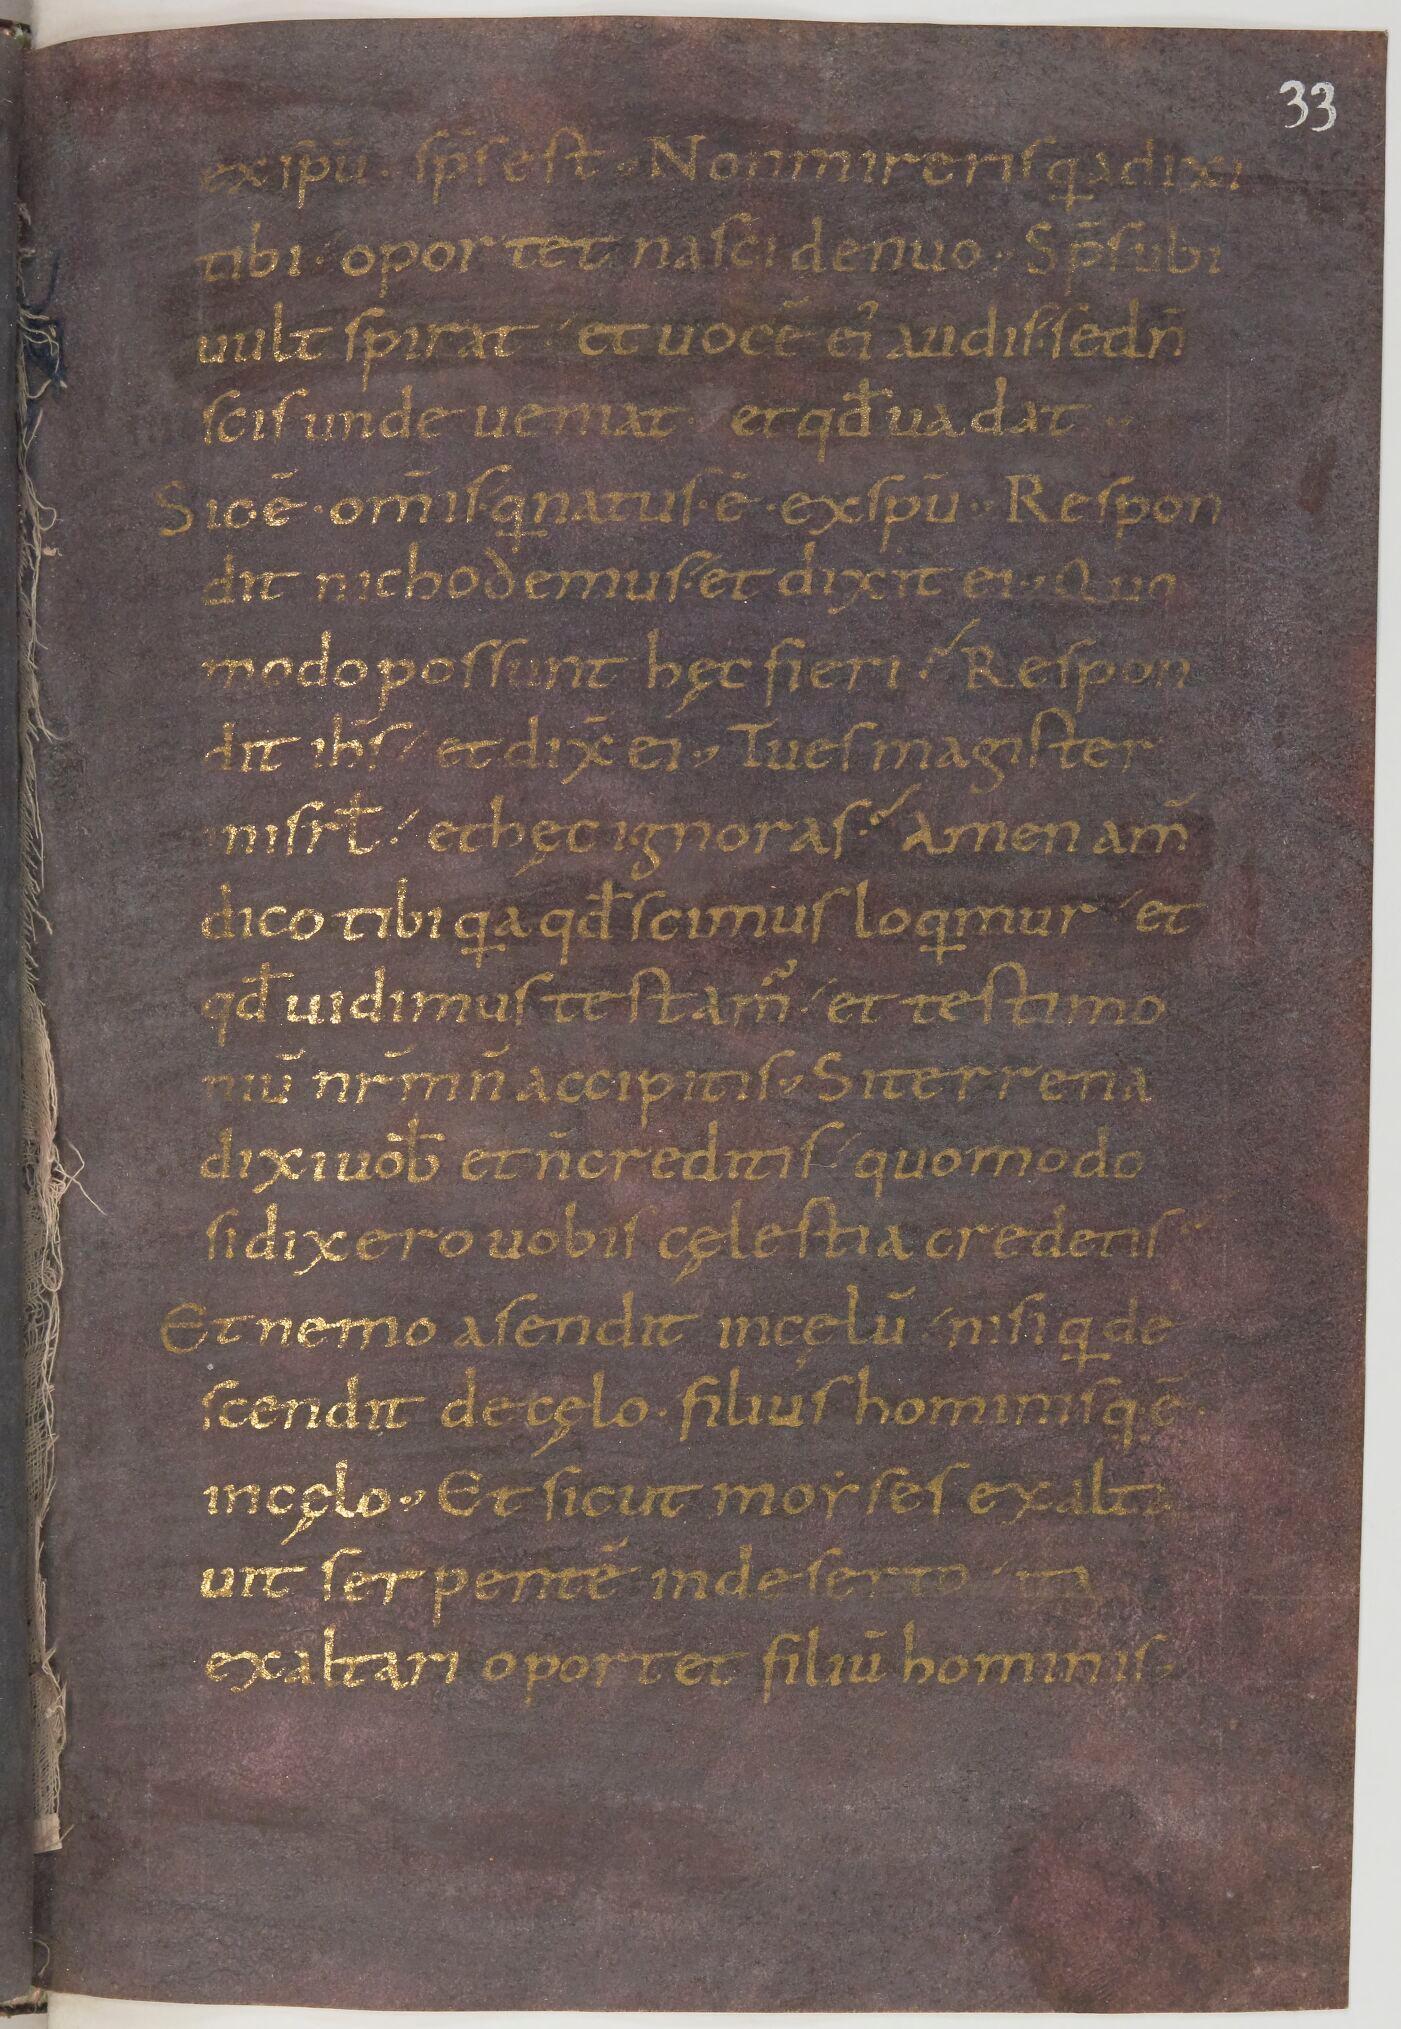 33
ex sp̄u · sp̄s est · Non mireris q̱a dixi
tibi · oportet nasci denuo · Sp̄s ubi
uult spirat · et uocē ei᾽ audis · sed n̄
scis unde ueniat · et qđ uadat ··
Sic · ē · om̄is q̱ natus · ē · ex sp̄u ·· Respon
dit nichodemus · et dixit ei · Quo
modo possunt hęc fieri ? Respon
dit ih̄s · et dix̄ ei · Tu es magister
in isrł · et hęc ignoras ? amen am̄
dico tibi q̱a qđ scimus loq̱mur · et
qđ uidimus testam᷒ · et testimo
niū nr̄m n̄ accipitis · Si terrena
dixi uob̄ et n̄ creditis · quomodo
si dixero uobis cęlestia credetis ?
Et nemo asendit in cęlū · nisi q̱ de
scendit de cęlo · filius hominis q̱ ē ·
in cęlo · Et sicut moẏses exalta
uit serpentē in deserto · ita
exaltari oportet filiū hominis ·